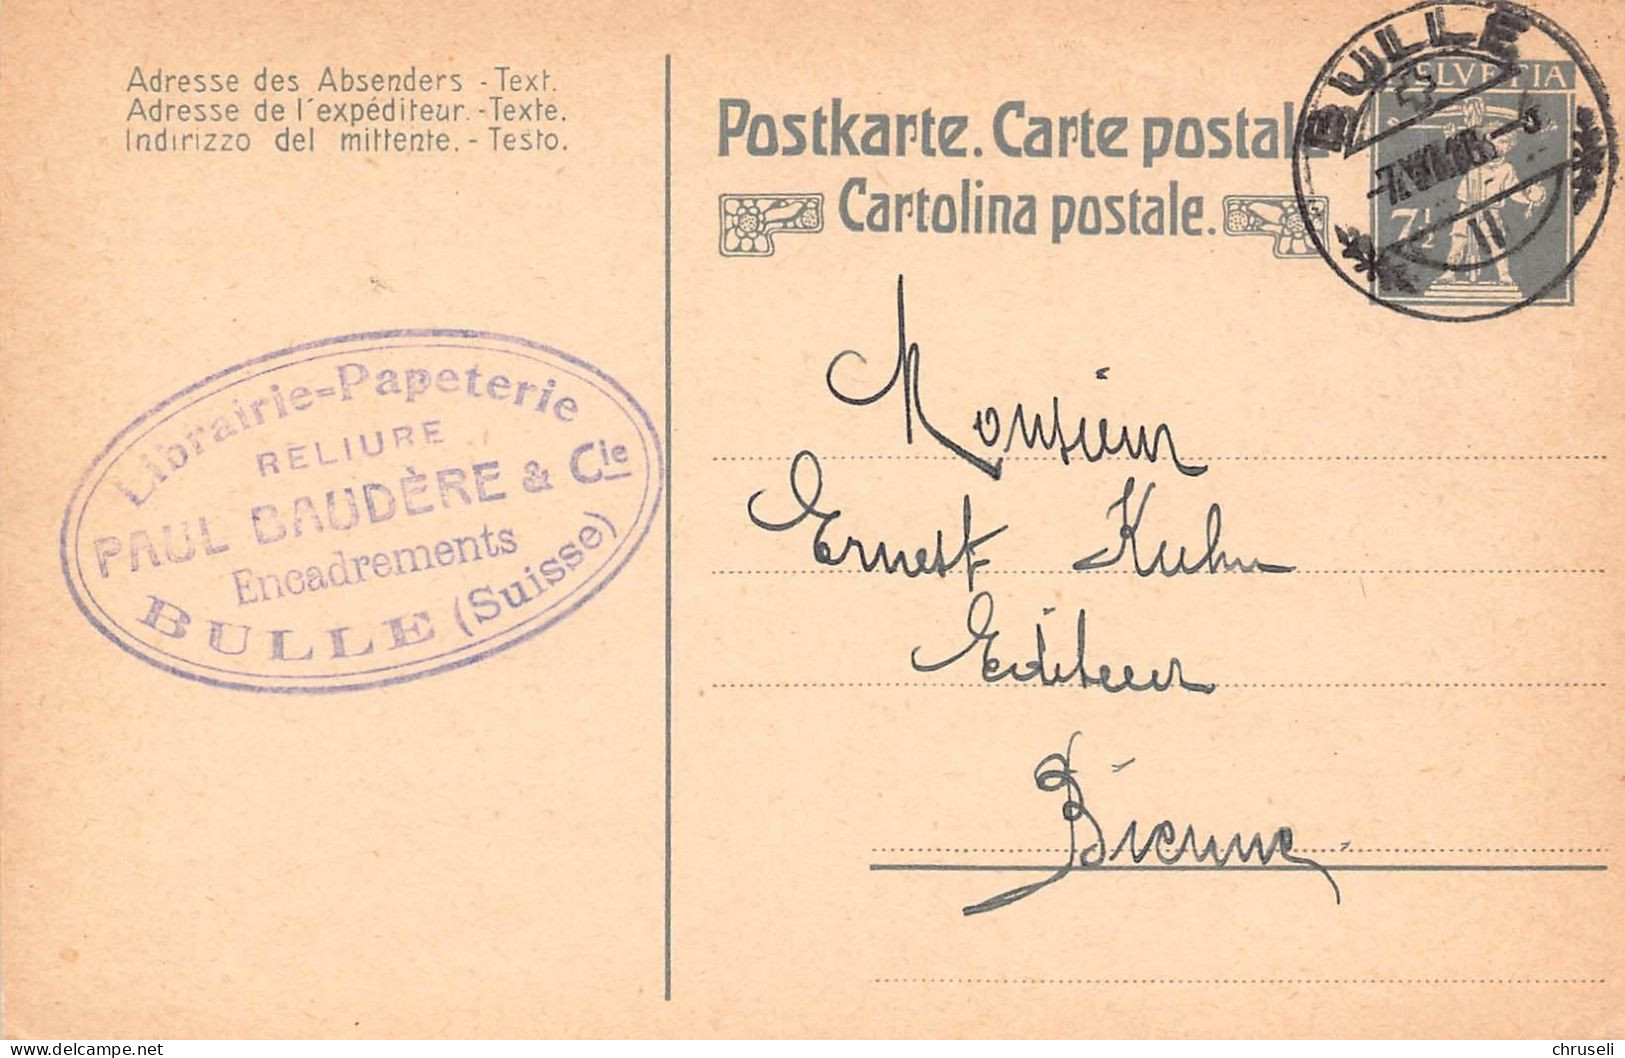 Adresse des Absenders - Text.
Adresse de l'expéditeur. - Texte.
Indirizzo del mittente. - Testo.
Postkarte. Carte postale
Cartolina postale.
HELVETIA
7½
BULLE
II
Librairie=Papeterie
RELIURE
PAUL BAUDÈRE & Cie
Encadrements
BULLE (Suisse)
Monsieur
Ernest Kuhn
Editeur
Bienne
chruseli